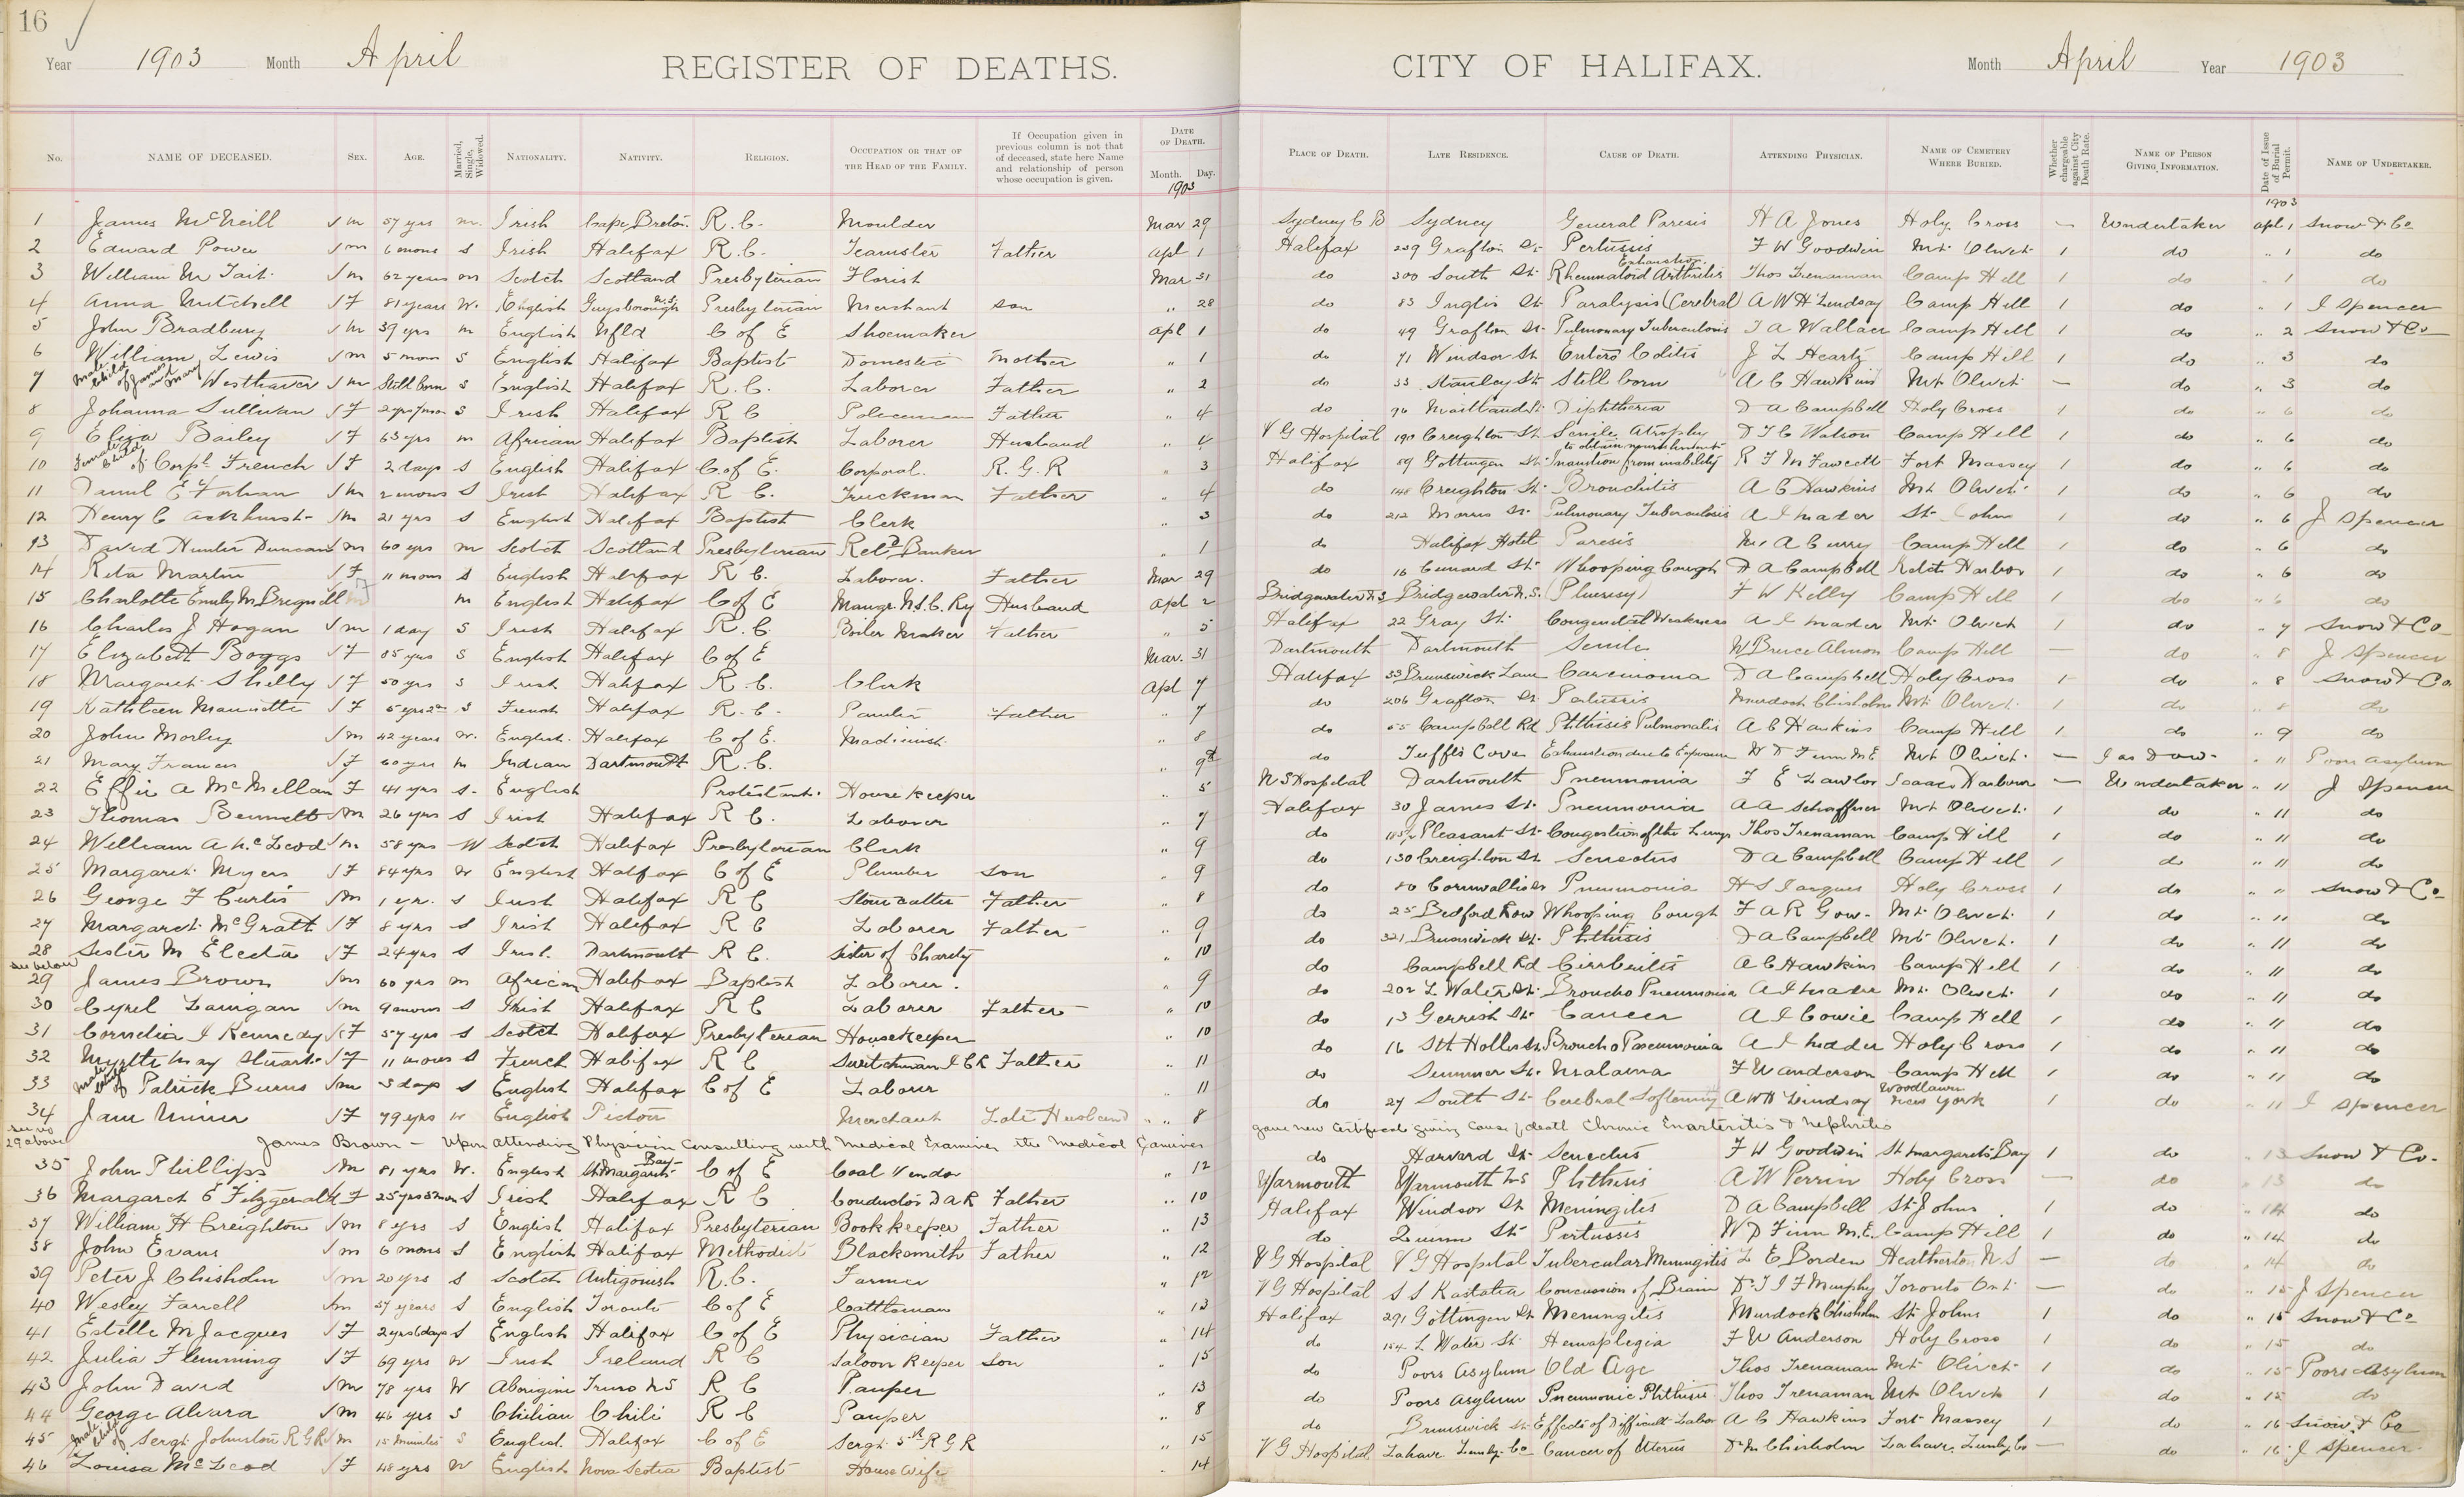 16
Year 1903 Month April
REGISTER OF DEATHS.
No. NAME OF DECEASED. SEX. AGE. Married, Single, Widowed. NATIONALITY. NATIVITY. RELIGION. OCCUPATION OR THAT OF THE HEAD OF THE FAMILY. If Occupation given in previous column is not that of deceased, state here Name and relationship of person whose occupation is given. DATE OF DEATH. Month. Day.
1903
1 James McNeill √ m 57 yrs m. Irish Cape Breton R.C. Moulder Mar 29
2 Edward Power √ m 6 mons s Irish Halifax R.C. Teamster Father Apl 1
3 William M Tait √ m 62 years m Scotch Scotland Presbyterian Florist Mar 31
4 Anna Mitchell √ F 81 years W. English Guysborough N.S. Presbyterian Merchant Son " 28
5 John Bradbury √ m 39 yrs m English Nfld C of E Shoemaker Apl 1
6 William Lewis √ m 5 mons s English Halifax Baptist Domestic Mother " 1
7 Male Child of James and Mary Westhaver √ m Still born s English Halifax R.C. Laborer Father " 2
8 Johanna Sullivan √ F 2 yrs 7 mon s Irish Halifax R C Policeman Father " 4
9 Eliza Bailey √ F 63 yrs m African Halifax Baptist Laborer Husband " 4
10 Female Child of Corpl French √ F 2 days s English Halifax C of E. Corporal. R.G.R " 3
11 Daniel E Forhan √ m 2 mons s Irish Halifax R C. Truckman Father " 4
12 Henry C Ackhurst √ m 21 yrs s English Halifax Baptist Clerk " 3
13 David Hunter Duncan √ m 60 yrs m Scotch Scotland Presbyterian Retd Banker " 1
14 Rita Martin √ F 11 mons s English Halifax R C. Laborer. Father Mar 29
15 Charlotte Emily M Brignell m English Halifax C of E Mangr N.S.C. Ry Husband Apl 2
16 Charles J Hogan √ m 1 day s Irish Halifax R.C. Boiler Maker Father " 5
17 Elizabeth Boggs √ F 85 yrs s English Halifax C of E Mar. 31
18 Margaret Shelly √ F 50 yrs s Irish Halifax R.C. Clerk Apl 7
19 Kathleen √ F 5 yrs s French Halifax R.C. Painter Father " 7
20 John Morley √ m 42 years W. English. Halifax C of E. Machinist " 8
21 Mary Francis √ F 60 yrs m Indian Dartmouth R.C. " 9th
22 Effie A McMellan F 41 yrs s. English Protestant. House keeper " 5
23 Thomas Bennett √ m 26 yrs s Irish Halifax R C. Laborer " 7
24 William A McLeod √ m 58 yrs W Scotch Halifax Presbyterian Clerk " 9
25 Margaret Myers √ F 84 yrs W English Halifax C of E Plumber Son " 9
26 George F Curtis √ m 1 yr. s Irish Halifax R C Stone cutter Father " 8
27 Margaret McGratt √ F 8 yrs s Irish Halifax R C Laborer Father " 9
28 Sister M Electa √ F 24 yrs s Irish. Dartmouth R C. Sister of Charity " 10
see below
29 James Brown √ m 60 yrs m African Halifax Baptist Laborer. " 9
30 Cyrel Lanigan √ m 9 mons s Irish Halifax R C Laborer Father " 10
31 Cornelia I Kennedy √ F 57 yrs s Scotch Halifax Presbyterian Housekeeper " 10
32 Myrtle May Stuart √ F 11 mons s French Halifax R C Switchman I C R Father " 11
33 Male Child of Patrick Burns √ m 3 days s English Halifax C of E Laborer " 11
34 Jane Miner √ F 79 yrs W English Pictou Merchant Late Husband " 8
see no 29 above James Brown — Upon attending Physician consulting with Medical Examiner the Medical Examiner
35 John Phillips √ m 81 yrs W. English St Margarets Bay C of E Coal Vendor " 12
36 Margaret E Fitzgerald √ F 25 yrs 3 mons s Irish Halifax R C Conductor D A R Father " 10
37 William H Creighton √ m 8 yrs s English Halifax Presbyterian Book keeper Father " 13
38 John Evans √ m 6 mons s English Halifax Methodist Blacksmith Father " 12
39 Peter J Chisholm √ m 20 yrs s Scotch Antigonish R.C. Farmer " 12
40 Wesley Farrell √ m 37 years s English Toronto C of E Cattleman " 13
41 Estelle M Jacques √ F 2 yrs 6 days s English Halifax C of E Physician Father " 14
42 Julia Flemming √ F 69 yrs W Irish Ireland R C Saloon Keeper Son " 15
43 John David √ m 78 yrs W Aborigine Truro N S R C Pauper " 13
44 George Alvara √ m 46 yrs s Chilian Chili R C Pauper " 8
45 Male Child of Sergt Johnston R G R √ m 15 minutes s English. Halifax C of E Sergt 5th R G R " 15
46 Louisa McLeod √ F 48 yrs W English Nova Scotia Baptist House Wife " 14
CITY OF HALIFAX.
Month April Year 1903
PLACE OF DEATH. LATE RESIDENCE. CAUSE OF DEATH. ATTENDING PHYSICIAN. NAME OF CEMETERY WHERE BURIED. Whether chargeable against City Death Rate. NAME OF PERSON GIVING INFORMATION. Date of Issue of Burial Permit. NAME OF UNDERTAKER.
1903
Sydney C B Sydney General Paresis H A Jones Holy Cross — Undertaker Apl 1 Snow & Co
Halifax 259 Grafton St Pertussis F W Goodwin Mt Olivet 1 do " 1 do
do 300 South St Rheumatoid Arthritis Exhaustion Thos Trenaman Camp Hill 1 do " 1 do
do 83 Inglis St Paralysis (Cerebral A W H Lindsay Camp Hill 1 do " 1 J Spencer
do 49 Grafton St Pulmonary Tuberculosis T A Wallace Camp Hill 1 do " 2 Snow & Co
do 71 Windsor St Entero Colitis J L Hearty Camp Hill 1 do " 3 do
do 33 Stanley St Still born A C Hawkins Mt Olivet — do " 3 do
do 96 Maitland St Diphtheria D A Campbell Holy Cross 1 do " 6 do
V G Hospital 190 Creighton St Senile Atrophy D T C Watson Camp Hill 1 do " 6 do
Halifax 89 Gottingen St Inanition from inability to obtain nourishment R F M Fawcett Fort Massey 1 do " 6 do
do 148 Creighton St Bronchitis A C Hawkins Mt Olivet 1 do " 6 do
do 212 Morris St Pulmonary Tuberculosis A I Mader St John 1 do " 6 J Spencer
do Halifax Hotel Paresis M. A Curry Camp Hill 1 do " 6 do
do 16 Cunard St Whooping Cough D A Campbell Ketch Harbor 1 do " 6 do
Bridgewater N S Bridgewater N.S. (Pluerisy) F W Kelly Camp Hill 1 do " 6 do
Halifax 22 Gray St. Congenital Weakness A I Mader Mt Olivet 1 do " 7 Snow & Co
Dartmouth Dartmouth Senile W Bruce Almon Camp Hill — do " 8 J Spencer
Halifax 33 Brunswick Lane Carcinoma D A Campbell Holy Cross 1 do " 8 Snow & Co
do 206 Grafton St Pertussis Murdoch Chisholm Mt Olivet 1 do " 8 do
do 55 Campbell Rd Phthisis Pulmonalis A C Hawkins Camp Hill 1 do " 9 do
do Tuffts Cove Exhaustion due to Exposure W D Finn M.E Mt Olivet — Jas Dow " 11 Poors Asylum
N S Hospital Dartmouth Pneumonia F E Lawlor Isaacs Harbour — Undertaker " 11 J Spencer
Halifax 30 James St. Pneumonia A A Schaffner Mt Olivet 1 do " 11 do
do 185½ Pleasant St Congestion of the Lungs Thos Trenaman Camp Hill 1 do " 11 do
do 130 Creighton St Senectus D A Campbell Camp Hill 1 do " 11 do
do 80 Cornwallis St Pneumonia H S Jacques Holy Cross 1 do " " Snow & Co
do 25 Bedford Row Whooping Cough F A R Gow Mt Olivet 1 do " 11 do
do 321 Brunswick St. Phthisis D A Campbell Mt Olivet. 1 do " 11 do
do Campbell Rd A C Hawkins Camp Hill 1 do " 11 do
do 202 L Water St Broncho Pneumonia A I Mader Mt Olivet 1 do " 11 do
do 13 Gerrish St Cancer A J Cowie Camp Hill 1 do " 11 do
do 16 Sth Hollis St Broncho Pneumonia A I Mader Holy Cross 1 do " 11 do
do Summer St. Malaena F W Anderson Camp Hill 1 do " 11 do
do 27 South St Cerebral Softening A W H Lindsay Woodlawn New York 1 do " 11 J Spencer
gave new certificate giving cause of death Chronic Enarteritis & Nephritis
do Harvard St Senectus F W Goodwin St Margarets Bay 1 do " 13 Snow & Co.
Yarmouth Yarmouth N S Phthisis A W Perrin Holy Cross — do " 13 do
Halifax Windsor St Meningitis D A Campbell St Johns 1 do " 14 do
do Quinn St Pertussis W D Finn M.E. Camp Hill 1 do " 14 do
V G Hospital V G Hospital Tubercular Meningitis L E Borden Heatherton N S — do " 14 do
V G Hospital S S Kastatia Concussion of Brain Dr T I F Murphy Toronto Ont — do " 15 J Spencer
Halifax 291 Gottingen St Meningitis Murdock Chisholm St Johns 1 do " 15 Snow & Co
do 154 L Water St Hemaplegia F W Anderson Holy Cross 1 do " 15 do
do Poors Asylum Old Age Thos Trenaman Mt Olivet 1 do " 15 Poors Asylum
do Poors Asylum Pneumonic Phthisis Thos Trenaman Mt Olivet 1 do " 15 do
do Brunswick St Effects of Difficult Labor A C Hawkins Fort Massey 1 do " 16 Snow & Co
V G Hospital Lahave Lunbg. Co Cancer of Uterus Dr M Chisholm Lahave, Lunbg Co — do " 16 J Spencer